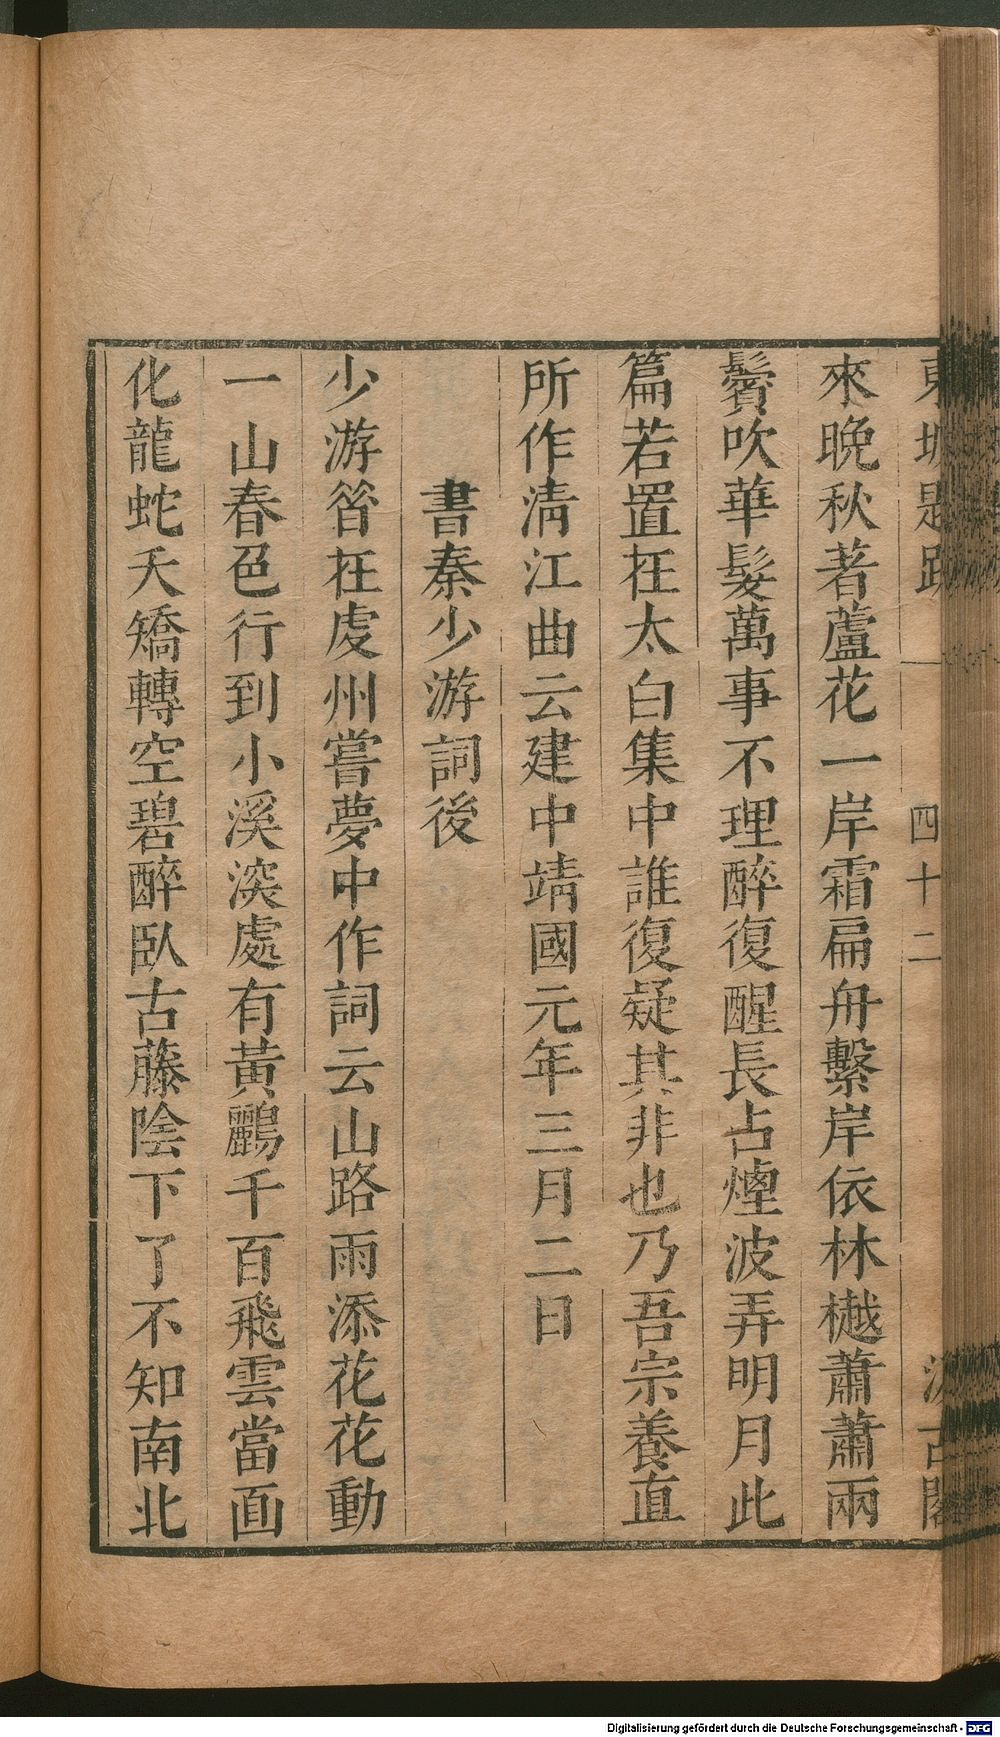 東坡題跋 四十二 汲古閣
來晚秋著蘆花一岸霜扁舟繫岸依林樾蕭蕭兩
鬢吹華髮萬事不理醉復醒長占煙波弄明月此
篇若置在太白集中誰復疑其非也乃吾宗養直
所作清江曲云建中靖國元年三月二日
書秦少游詞後
少游昔在虔州嘗夢中作詞云山路雨添花花動
一山春色行到小溪深處有黃鸝千百飛雲當面
化龍蛇夭矯轉空碧醉臥古藤陰下了不知南北
Digitalisierung gefördert durch die Deutsche Forschungsgemeinschaft - DFG